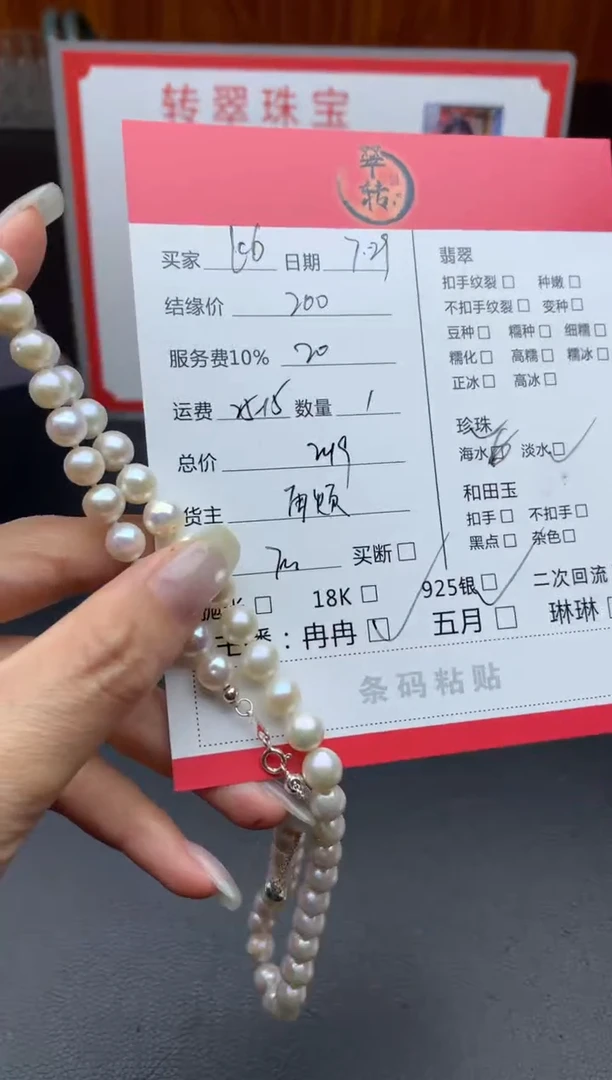 转翠珠宝
翠转
买家 日期 7.29
结缘价 200
服务费10% 20
运费 数量 1
总价
货主
买断□
18K□
冉冉
翡翠
扣手纹裂□ 种嫩□
不扣手纹裂□ 变种□
豆种□ 糯种□ 细糯□
糯化□ 高糯□ 糯冰□
正冰□ 高冰□
珍珠
海水 淡水□
和田玉
扣手□ 不扣手□
黑点□ 杂色□
925银□ 二次回流
五月□ 琳琳□
条码粘贴